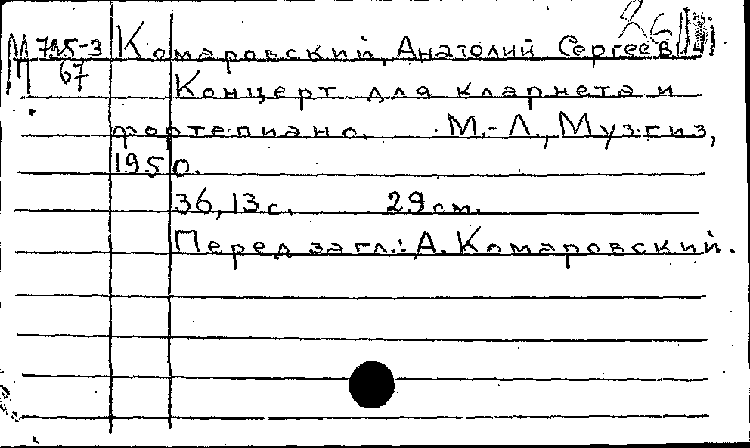 М 725-3 Комаровский, Анатолий Сергеевич
67 Концерт для кларнета и
фортепиано. М.-Л., Музгиз,
1950.
36, 13 с. 29 см.
Перед загл.: А. Комаровский.